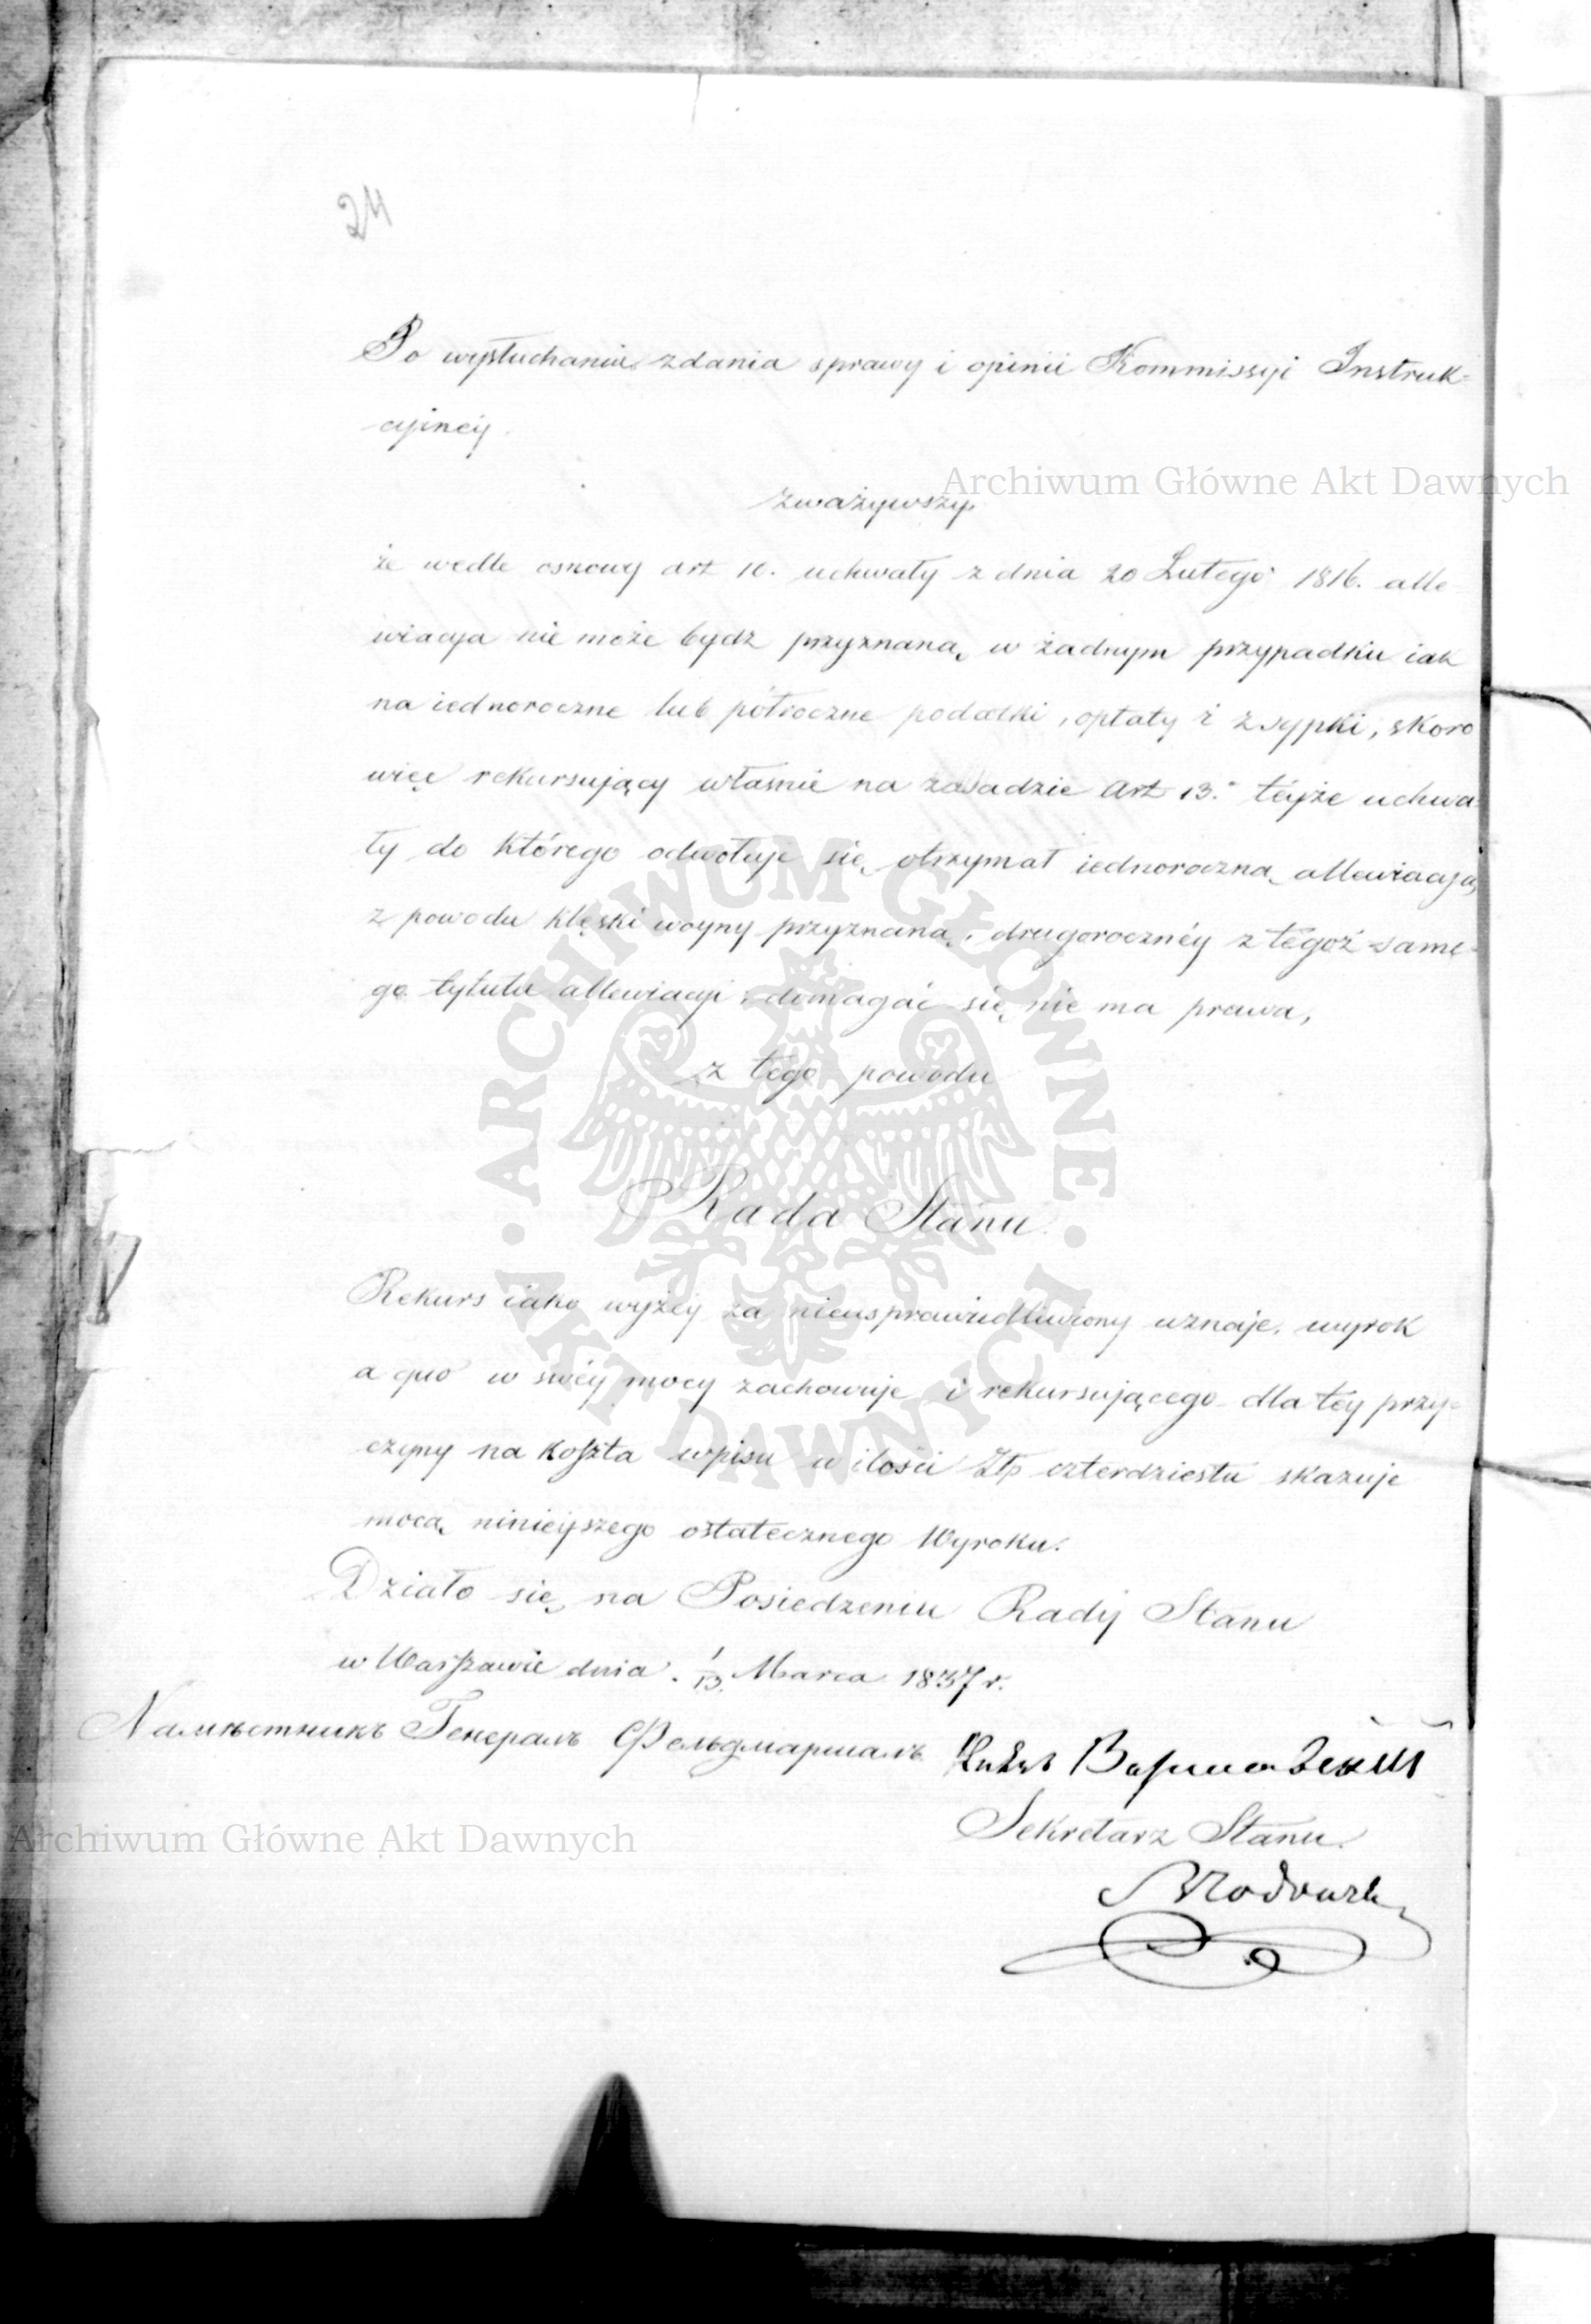 24
Po wysłuchaniu zdania sprawy i opinii Kommissyi Instruk=
cyinéy.
Zważywszy.
że wedle osnowy art 10. uchwały z dnia 20 Lutego 1816. alle
wiacya nie może bydz przyznaną w żadnym przypadku iak
na iednoroczne lub półroczne podatki, opłaty i zsypki, skoro
więc rekursujący właśnie na zasadzie Art 13. téyże uchwa
ły do którego odwołuje się otrzymał iednoroczną allewiacyą
z powodu klęski woyny przyznaną, drugorocznéy z tegoż same=
go tytułu allewiacyi domagać się nie ma prawa,
z tego powodu
Rada Stanu.
Rekurs iako wyżéy za nieusprawiedliwiony uznaje, wyrok
a quo w swéy mocy zachowuje i rekursującego dla téy przy=
czyny na koszta wpisu w ilości Złp czterdziestu skazuje
mocą ninieyszego ostatecznego Wyroku.
Działo się na Posiedzeniu Rady Stanu
w Warszawie dnia 1/13. Marca 1837 r.
Намѣстникъ Генералъ Фельдмаршалъ
Sekretarz Stanu
Archiwum Główne Akt Dawnych
Archiwum Główne Akt Dawnych
ARCHIWUM GŁÓWNE · AKT DAWNYCH ·